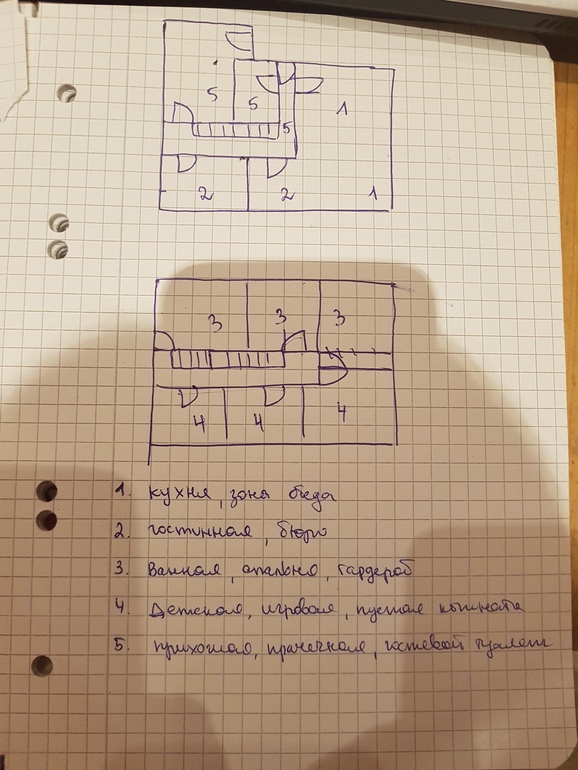 5
5
5
1
2
2
1
3
3
3
4
4
4
1. кухня, зона беда
2. гостинная, бюро
3. Ванная, спально, гардероб
4. Детская, игровая, пустая комната
5. прихожая, прачечная, гостевой туалет